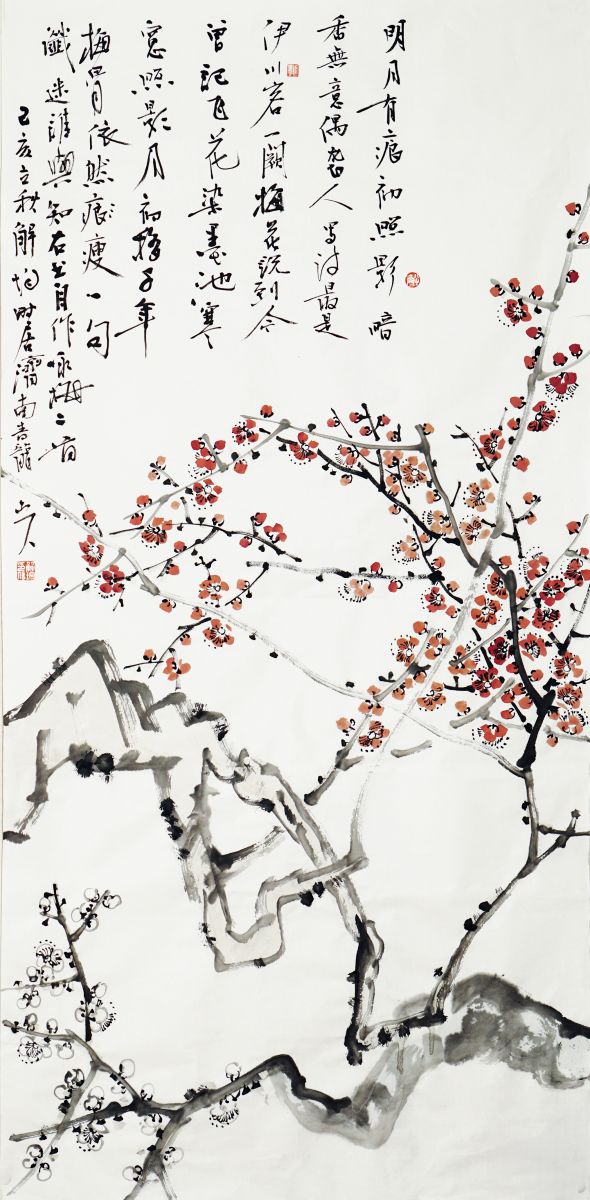 明月有痕初照影暗
香無意偶人最是
伊川客一闋梅花説到今
曾記飛花染墨池寒
窓照影月初移千年
梅骨依然瘦一句
籤迷誰與知右書自作咏梅二首
己亥立秋解均时居濟南青龍山人